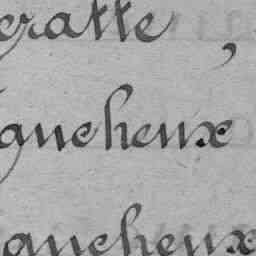 eratte,
gancheux
gancheux